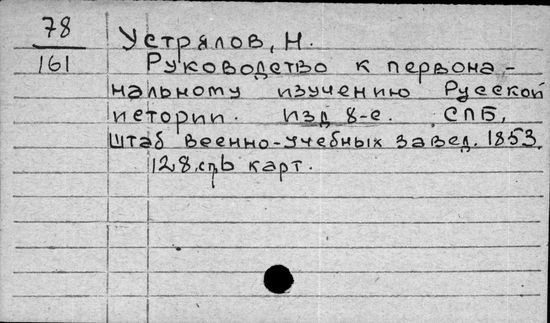 78
161
Устрялов, Н.
Руководство к первона-
нальному изучению Русской
истории. изд 8-е. СПБ,
Штаб военно-учебных завед. 1853.
128, стр карт.